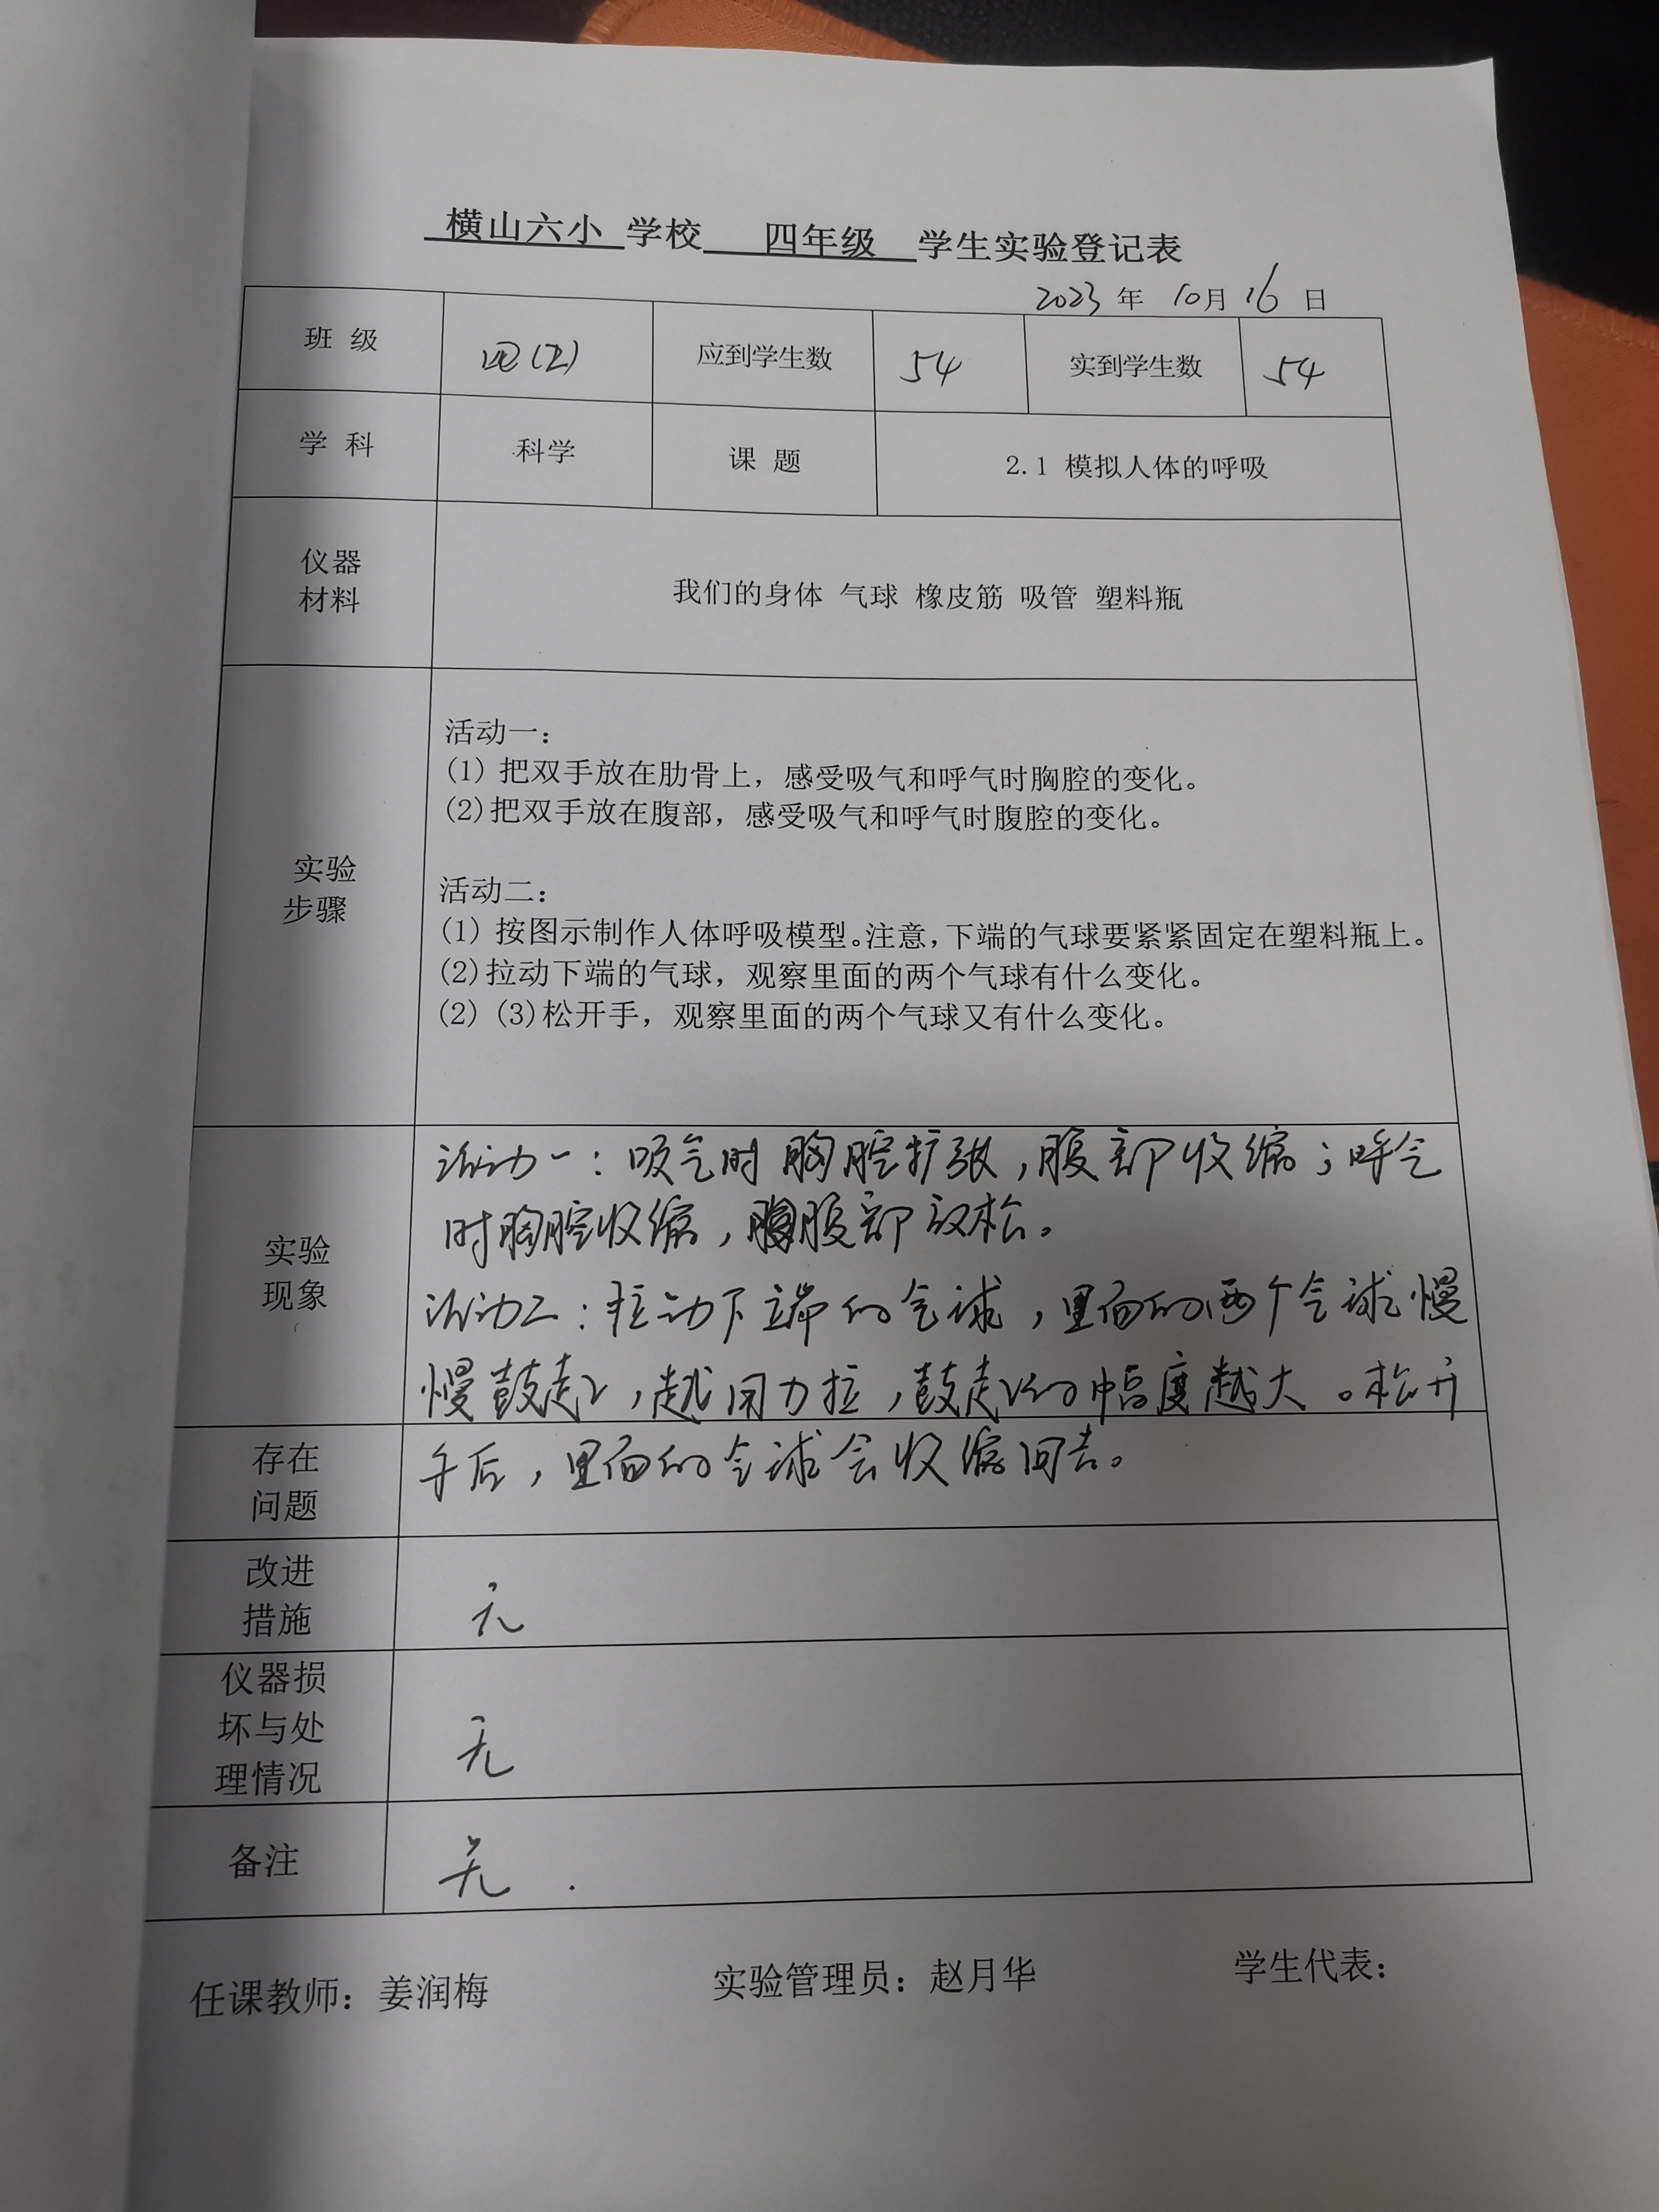 横山六小 学校 四年级 学生实验登记表
2023 年 10月 16 日
班 级 四(2) 应到学生数 54 实到学生数 54
学 科 科学 课 题 2.1 模拟人体的呼吸
仪器
材料
我们的身体 气球 橡皮筋 吸管 塑料瓶
实验
步骤
活动一：
(1) 把双手放在肋骨上，感受吸气和呼气时胸腔的变化。
(2)把双手放在腹部，感受吸气和呼气时腹腔的变化。
活动二：
(1) 按图示制作人体呼吸模型。注意，下端的气球要紧紧固定在塑料瓶上。
(2)拉动下端的气球，观察里面的两个气球有什么变化。
(2) (3)松开手，观察里面的两个气球又有什么变化。
实验
现象
活动一：吸气时胸腔扩张，腹部收缩；呼气
时胸腔收缩，腹部放松。
活动二：拉动下端的气球，里面的两个气球慢
慢鼓起，越用力拉，鼓起的幅度越大。松开
手后，里面的气球会收缩回去。
存在
问题
改进
措施
无
仪器损
坏与处
理情况
无
备注
无.
任课教师：姜润梅 实验管理员：赵月华 学生代表：